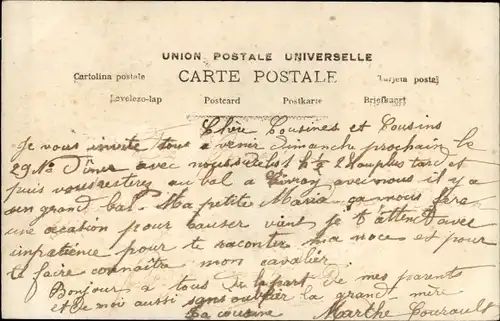 UNION POSTALE UNIVERSELLE
Cartolina postale CARTE POSTALE Tarjeta postal
Levelezo-lap Postcard Postkarte Briefkaart
Chère Cousines et Cousins
Je vous invite tous a venir dimanche prochain le
29 Dîner avec nous 2 au plus tard et
puis vous resterez au bal à avec nous il y a
un grand bal. Ma petite Maria ça nous fera
une acation pour causer vient je t'attend avec
inpatience pour te raconter ma noce et pour
te faire connaître mon cavalier.
Bonjour a tous de la part de mes parents
et de moi aussi sans oublier la grand-mère
La cousine Marthe Courault